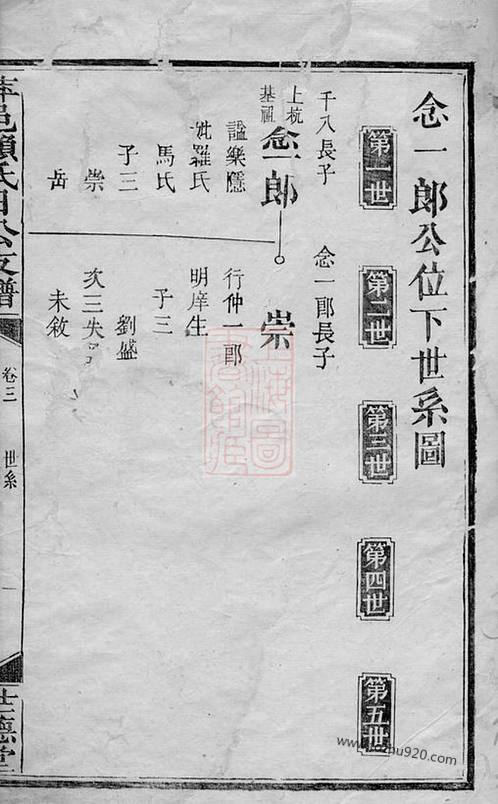 念一郎公位下世系圖
第一世
第二世
第三世
第四世
第五世
千八長子
上杭基祖
念一郎
諡樂隱
妣羅氏
馬氏
子三
崇
岳
念一郎長子
崇
行仲一郎
明庠生
子三
劉盛
次三失
未敘
卷三
世系
一
世德堂
上海圖書館藏
920.com